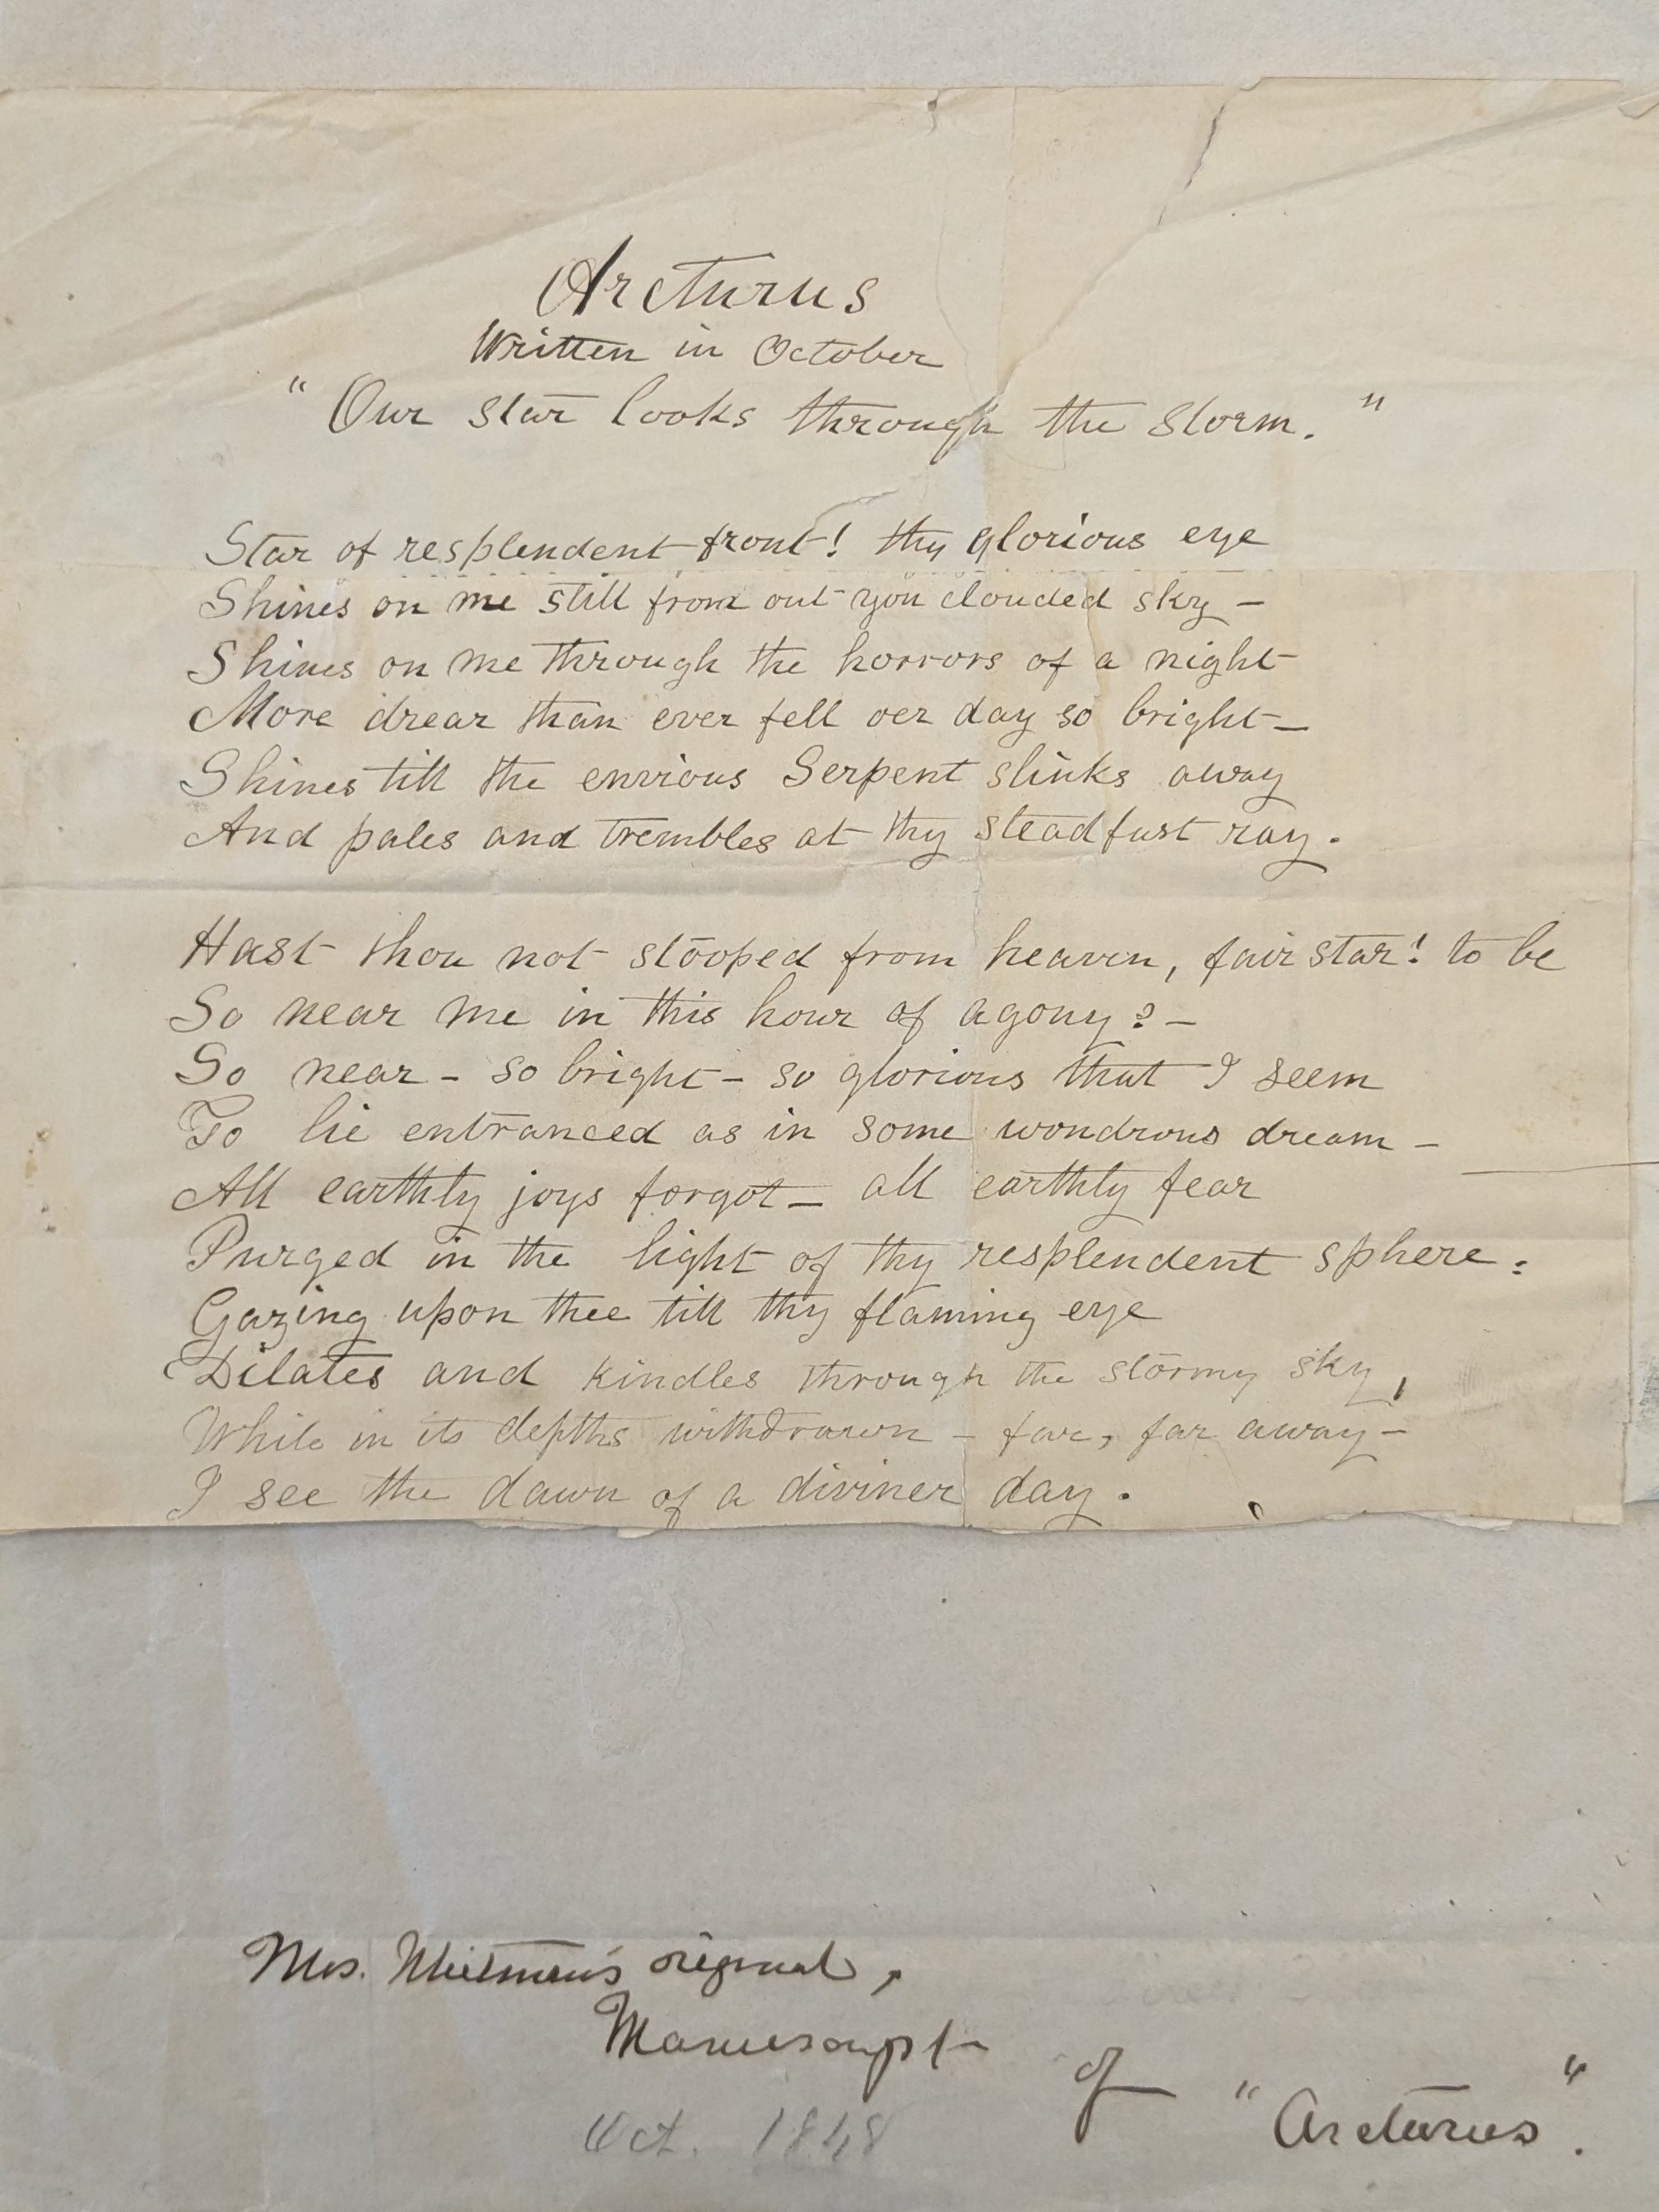 Arcturus
Written in October
"Our star looks through the storm."
Star of resplendent front! thy glorious eye
Shines on me still from out yon clouded sky –
Shines on me through the horrors of a night
More drear than ever fell oer day so bright –
Shines till the envious Serpent slinks away
And pales and trembles at thy steadfast ray.
Hast thou not stooped from heaven, fair star! to be
So near me in this hour of agony? –
So near – so bright – so glorious that I seem
To lie entranced as in some wondrous dream –
All earthly joys forgot – all earthly fear
Purged in the light of thy resplendent sphere:
Gazing upon thee till thy flaming eye
Dilates and kindles through the stormy sky,
While in its depths withdrawn – far, far away –
I see the dawn of a diviner day.
Mrs. Whitman's original,
Manuscript
of "Arcturus".
Oct. 1848